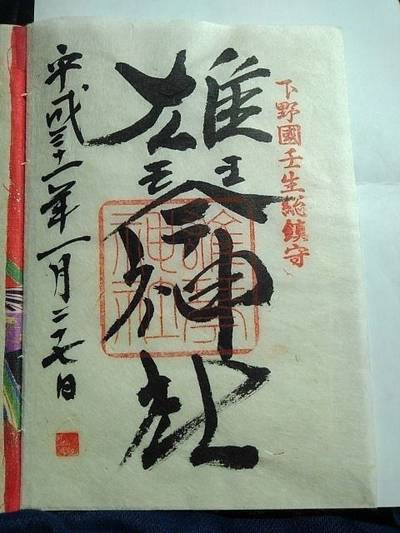 下野國壬生総鎮守
雄琴神社
平成三十一年一月二十七日
雄琴神社